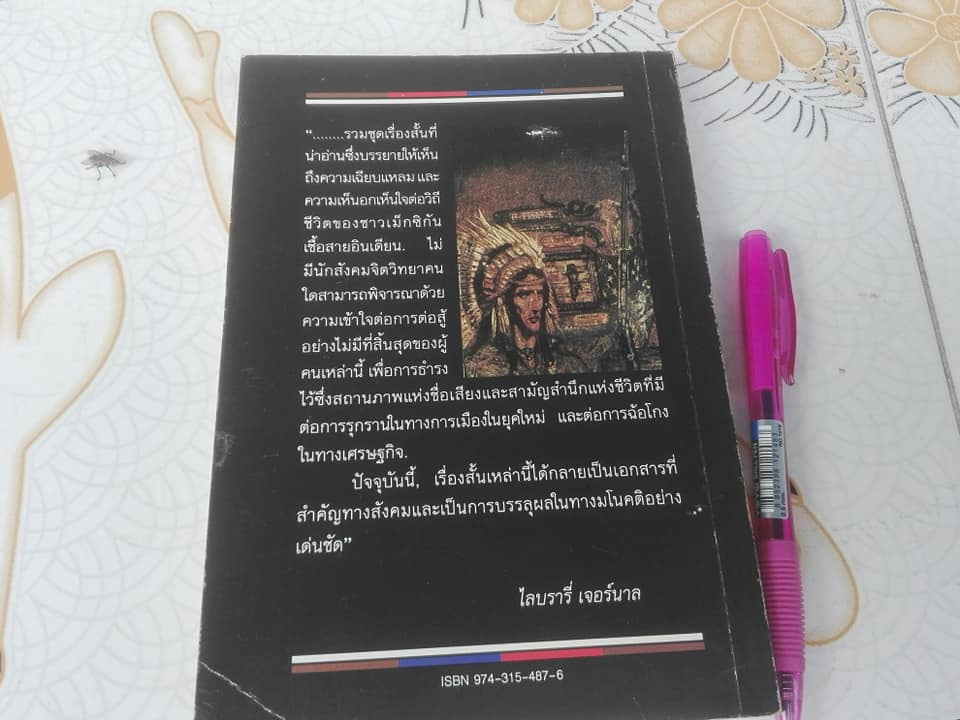 “........รวมชุดเรื่องสั้นที่
น่าอ่านซึ่งบรรยายให้เห็น
ถึงความเฉียบแหลม และ
ความเห็นอกเห็นใจต่อวิถี
ชีวิตของชาวเม็กซิกัน
เชื้อสายอินเดียน. ไม่
มีนักสังคมจิตวิทยาคน
ใดสามารถพิจารณาด้วย
ความเข้าใจต่อการต่อสู้
อย่างไม่มีที่สิ้นสุดของผู้
คนเหล่านี้ เพื่อการธำรง
ไว้ซึ่งสถานภาพแห่งชื่อเสียงและสามัญสำนึกแห่งชีวิตที่มี
ต่อการรุกรานในทางการเมืองในยุคใหม่ และต่อการฉ้อโกง
ในทางเศรษฐกิจ.
ปัจจุบันนี้, เรื่องสั้นเหล่านี้ได้กลายเป็นเอกสารที่
สำคัญทางสังคมและเป็นการบรรลุผลในทางมโนคติอย่าง
เด่นชัด”
ไลบรารี่ เจอร์นาล
ISBN 974-315-487-6